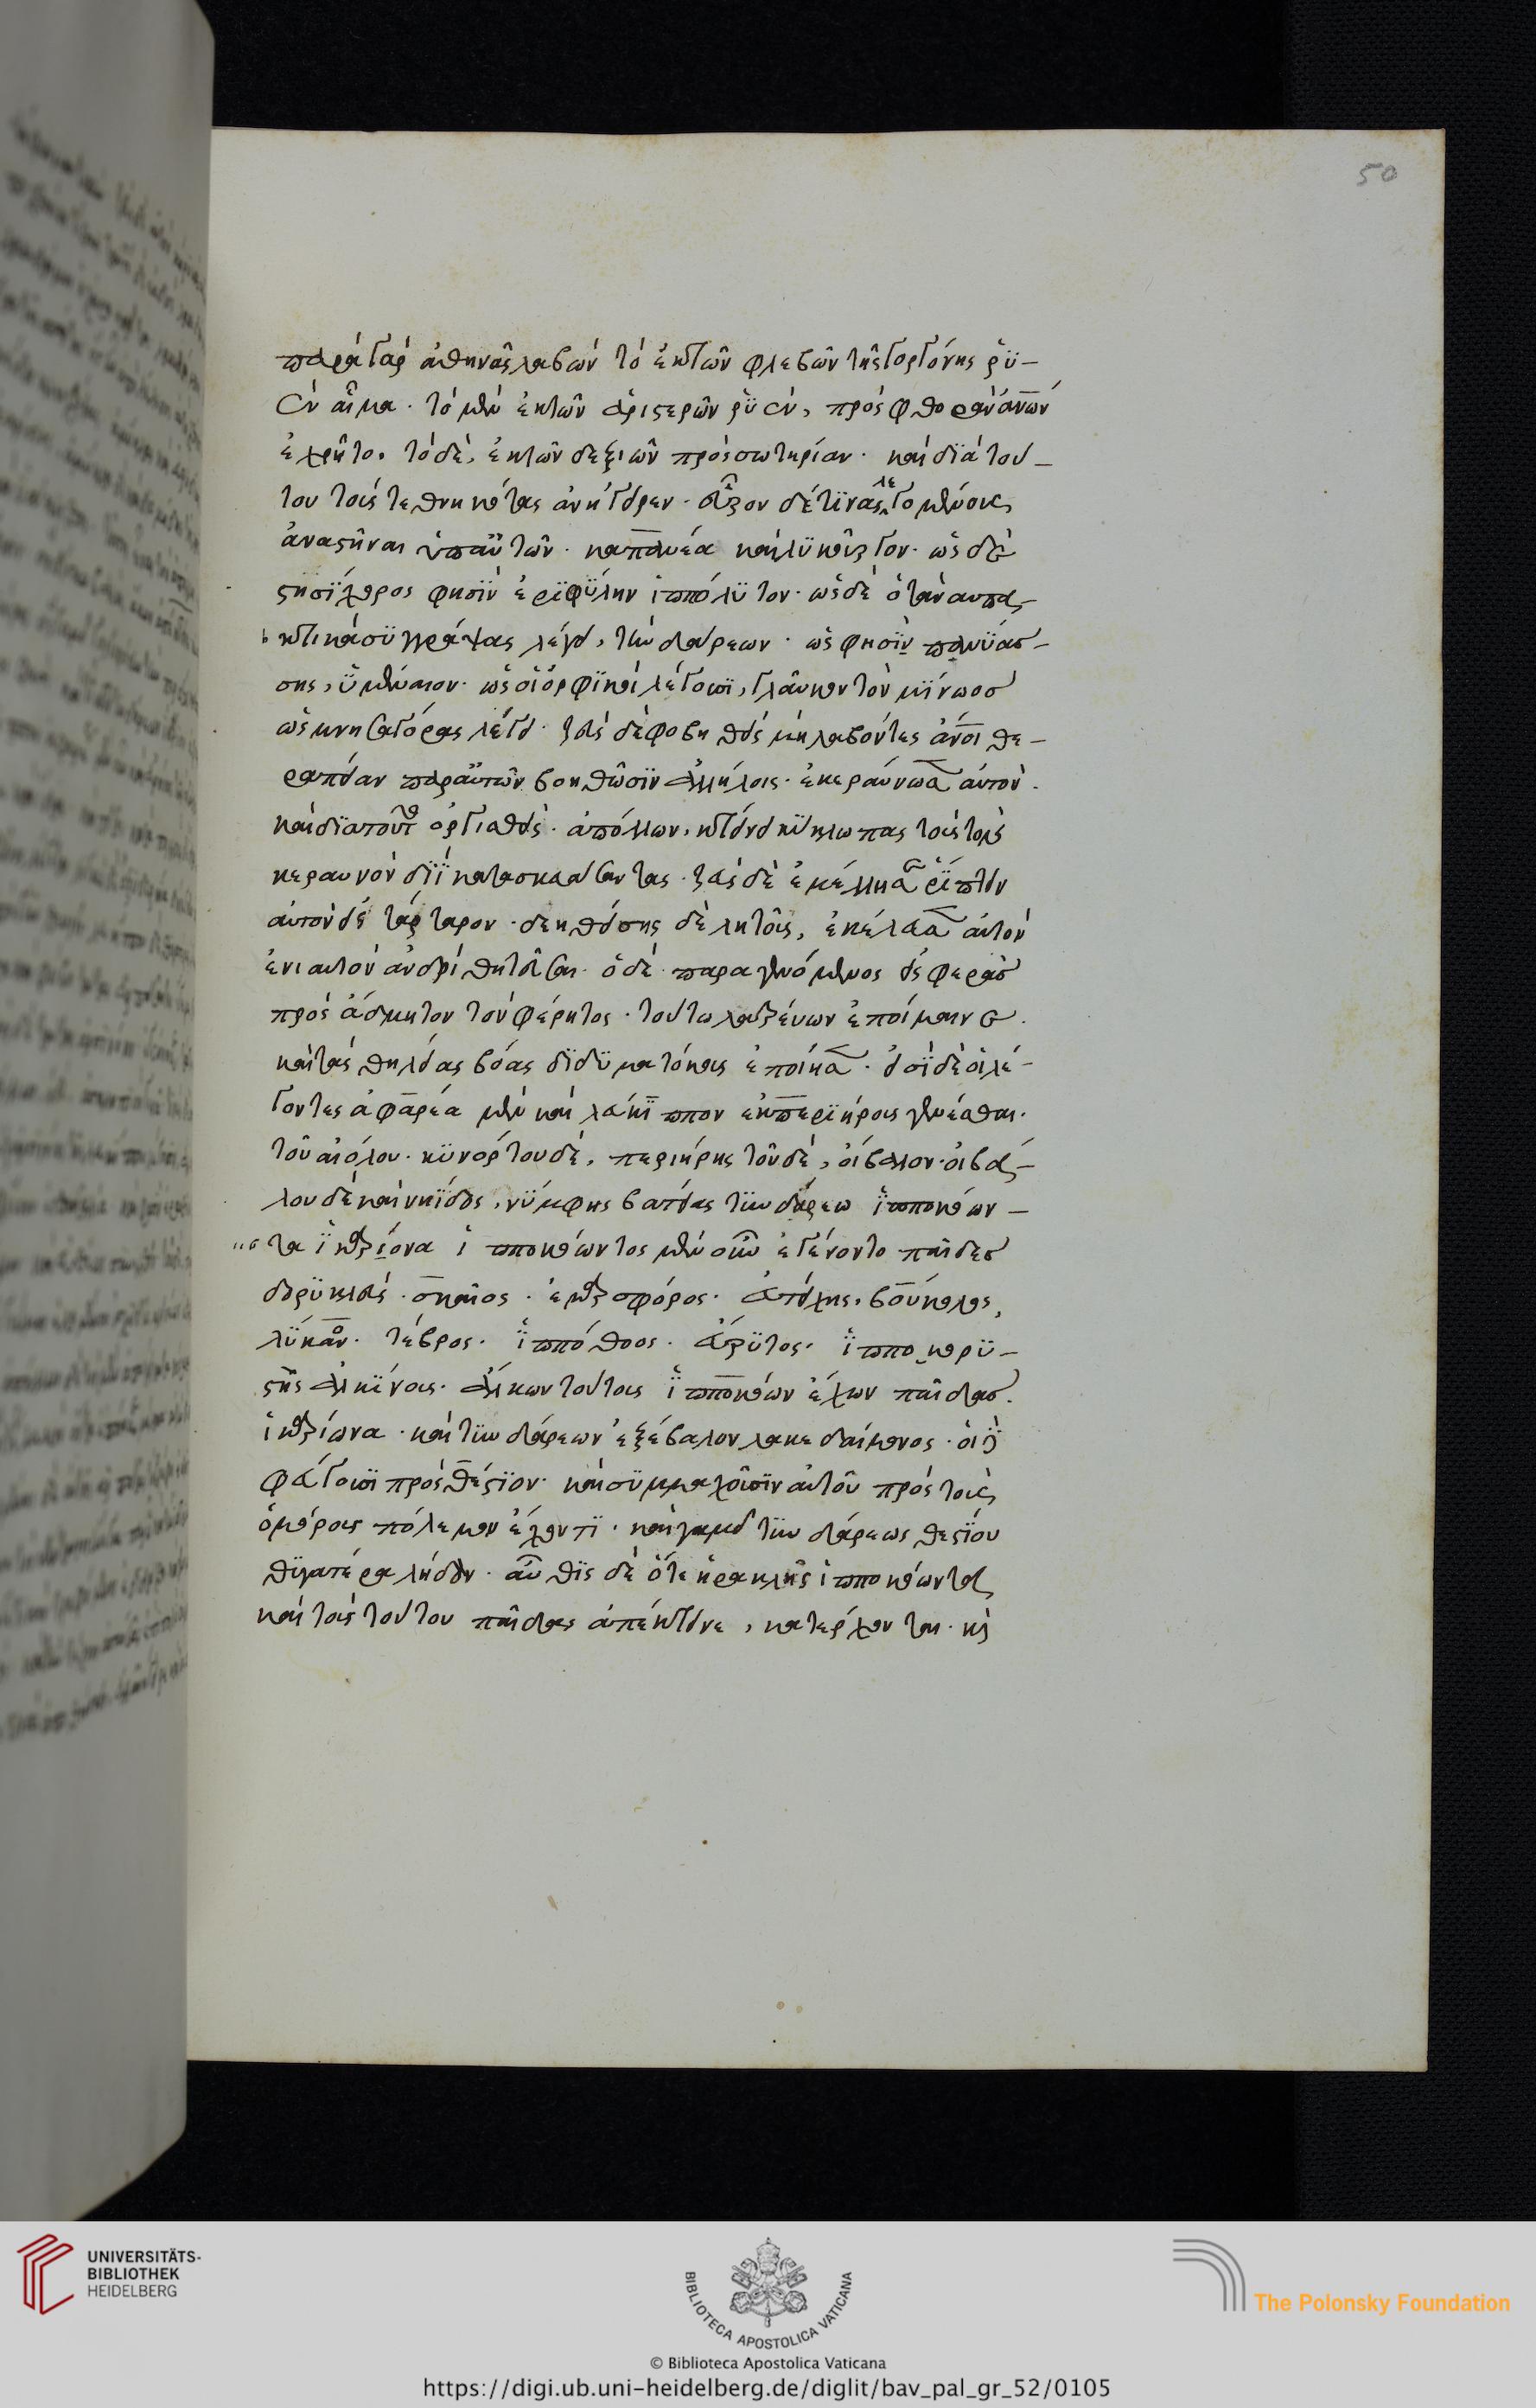 50
παρὰ γὰρ ἀθηνᾶς λαβὼν τὸ ἐκ τῶν φλεβῶν τῆς γοργόνης ῥυ-
ὲν αἷμα. τὸ μὲν ἐκ τῶν ἀριστερῶν ῥυὲν, πρὸς φθορὰν ἀνων
ἐχρῆτο. τὸ δὲ, ἐκ τῶν δεξιῶν πρὸς σωτηρίαν. καὶ διὰ τού-
του τοὺς τεθνηκότας ἀνήγειρεν. εὗρον δέ τινας λεγομένους
ἀναστῆναι ὑπ αὐτῶν. καπανέα καὶ λυκοῦργον. ὡς δὲ
στησίχορος φησὶν ἐριφύλην ἱππόλυτον. ὡς δὲ ὁ τὰ ναυπα-
κτικὰ συγγράψας λέγει, τυνδάρεων. ὡς φησὶν πανύασ-
σης, ὑμέναιον. ὡς οἱ ὀρφικοὶ λέγουσι, γλαῦκον τὸν μίνωοσ
ὡς μνησαγόρας λέγει. ζεὺς δὲ φοβηθεὶς μὴ λαβόντες ἄνοι θε-
ραπείαν παρ αὐτῶν βοηθῶσιν ἀλλήλοις. ἐκεραύνωσεν αὐτὸν.
καὶ διὰ τοῦτο ὀργισθεὶς. ἀπόλλων, κτείνει κύκλωπας τοὺς τὸν
κεραυνὸν διῒ κατασκευάσαντας. ζεὺς δὲ ἐμέλλησε ῥίπτειν
αὐτὸν εἰς τάρταρον. δεηθείσης δὲ λητοῦς, ἐκέλευσεν αὐτὸν
ἐνιαυτὸν ἀνδρὶ θητεῦσαι. ὁ δὲ παραγενόμενος εἰς φερὰσ
πρὸς ἄδμητον τὸν φέρητος. τούτω λατρεύων ἐποίμαινε.
καὶ τὰς θηλείας βόας διδυματόκους ἐποίησεν. εἰσὶ δὲ οἱ λέ-
γοντες ἀφαρέα μὲν καὶ λεύκιππον ἐκ περιήρους γενέσθαι.
τοῦ αἰόλου. κυνόρτου δὲ, περιήρης τοῦ δὲ, οἴβαλον. οἰβά-
λου δὲ καὶ νηΐδος, νύμφης βατείας τυνδάρεω ἱπποκόων-
τα ἰκαρίονα ἱπποκόωντος μὲν οὖν ἐγένοντο παῖδεσ
δορυκλεὺς. σκαῖος. ἐναροφόρος. εὐτείχης. βουκόλος,
λύκαον. τέβρος. ἱππόθοος. εὔρυτος. ἱπποκορυ-
στὴς ἀλκίνους. ἄλκων τούτους ἱπποκόων ἔχων παῖδασ.
ἰκαρίωνα. καὶ τυνδάρεων ἐξέβαλον λακεδαίμονος. οἱ δὲ
φεύγουσι πρὸς θέστιον. καὶ συμμαχοῦσιν αὐτοῦ πρὸς τοὺς
ὁμόρους πόλεμον ἔχοντι. καὶ γαμεῖ τυνδάρεως θεστίου
θυγατέρα λήδαν. αὖθις δὲ ὅτε ἡρακλῆς ἱπποκόωντα
καὶ τοὺς τούτου παῖδας ἀπέκτεινε, κατέρχονται. κὶ
UNIVERSITÄTS-
BIBLIOTHEK
HEIDELBERG
BIBLIOTECA APOSTOLICA VATICANA
The Polonsky Foundation
© Biblioteca Apostolica Vaticana
https://digi.ub.uni-heidelberg.de/diglit/bav_pal_gr_52/0105